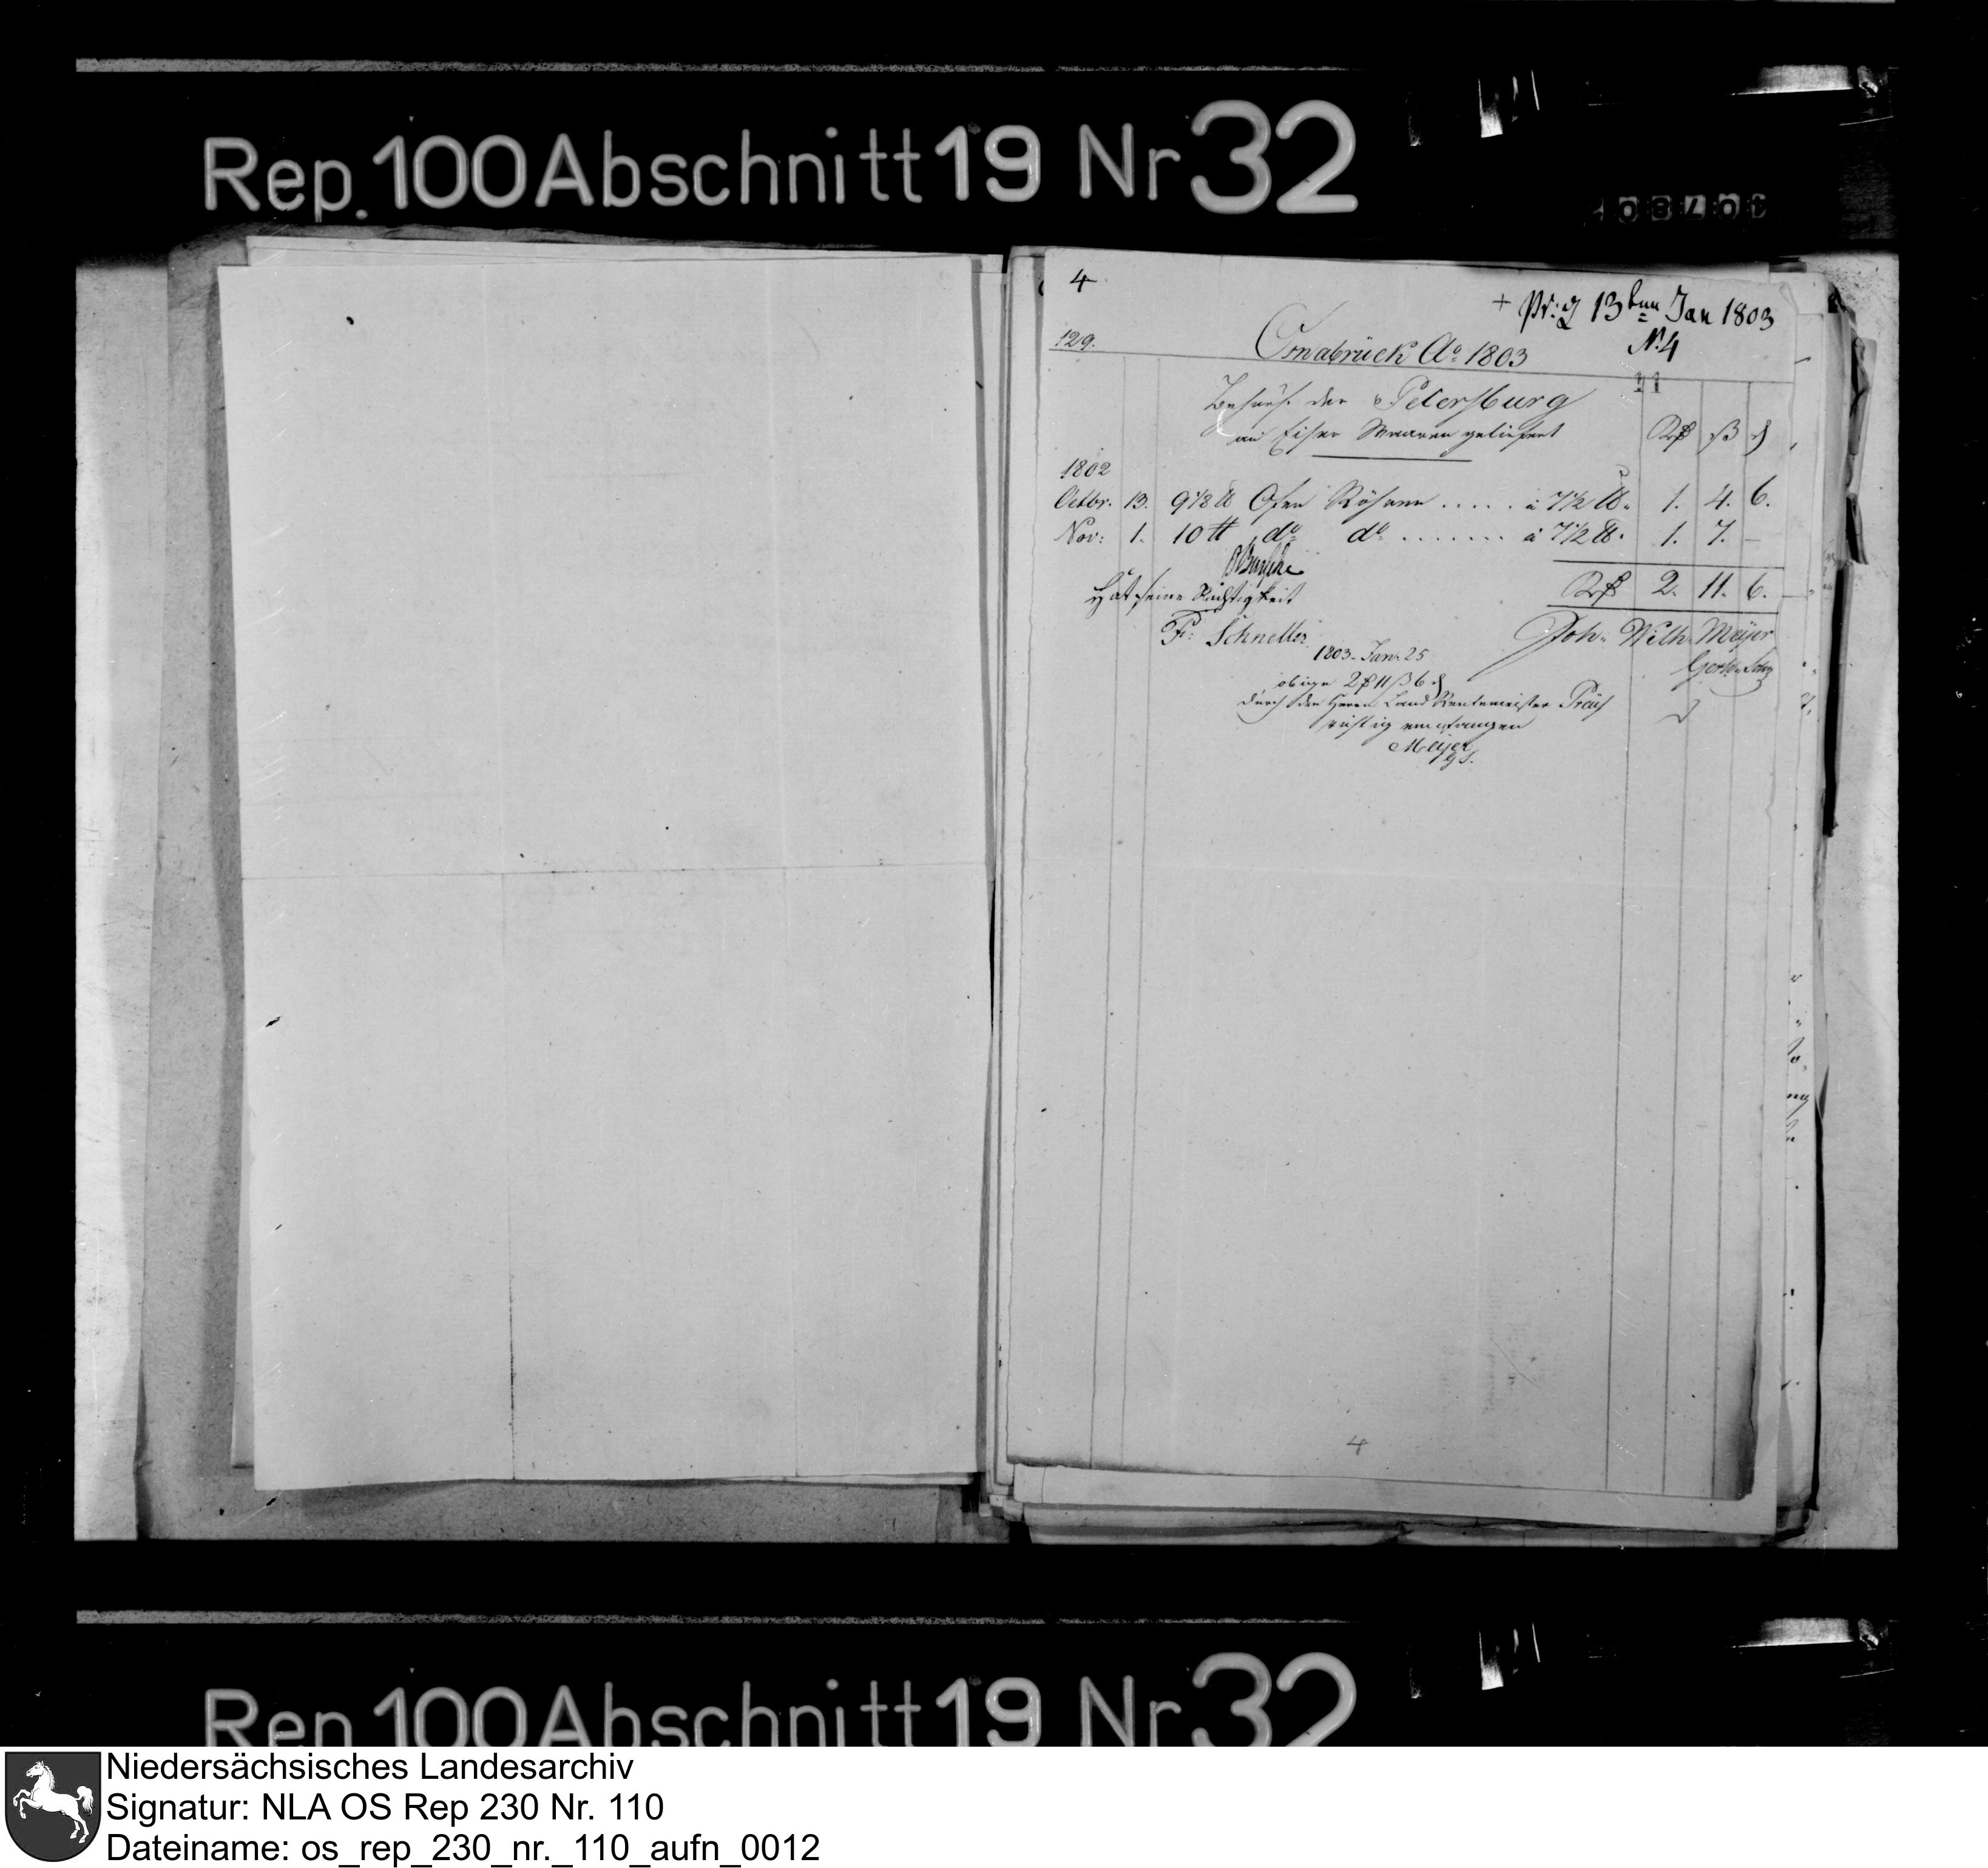 Rep. 100 Abschnitt 19 Nr 32
4
+ Pr: d 13ten Jan 1803
N. 4
129.
Osnabrück Ao 1803
11
Behuf der Petersburg
an Eisen Waaren geliefert
Rthlr ß d
1802
Octbr. 13. 9 1/8 ℔ Ofen Röhren ..... à 7 1/2 ℔. 1. 4. 6.
Nov: 1. 10 ℔ do do ....... à 7 1/2 ℔. 1. 7. —
Rthlr 2. 11. 6.
Hat seine Richtigkeit
F: Schneller
Joh. Wilh. Meyer
Gerh. Sohn
1803. Jan. 25
obige 2 ₰ 11 ß 6 d
durch den Herrn Land Rentemeister Preuß
richtig empfangen
Meyer
G S.
4
Rep 100 Abschnitt 19 Nr 32
Niedersächsisches Landesarchiv
Signatur: NLA OS Rep 230 Nr. 110
Dateiname: os_rep_230_nr._110_aufn_0012